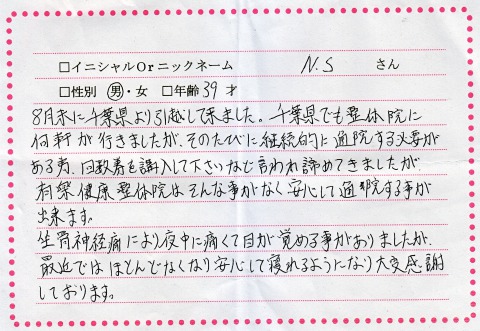 □イニシャルOrニックネーム N.S さん
□性別 男・女 □年齢 39 才
8月末に千葉県より引越して来ました。千葉県でも整体院に
何軒か行きましたが、そのたびに継続的に通院する必要が
ある為、回数券を購入して下さいなど言われ諦めてきましたが
有楽健康整体院はそんな事がなく安心して通院する事が
出来ます。
坐骨神経痛により夜中に痛くて目が覚める事がありましたが、
最近ではほとんどなくなり安心して寝れるようになり大変感謝
しております。